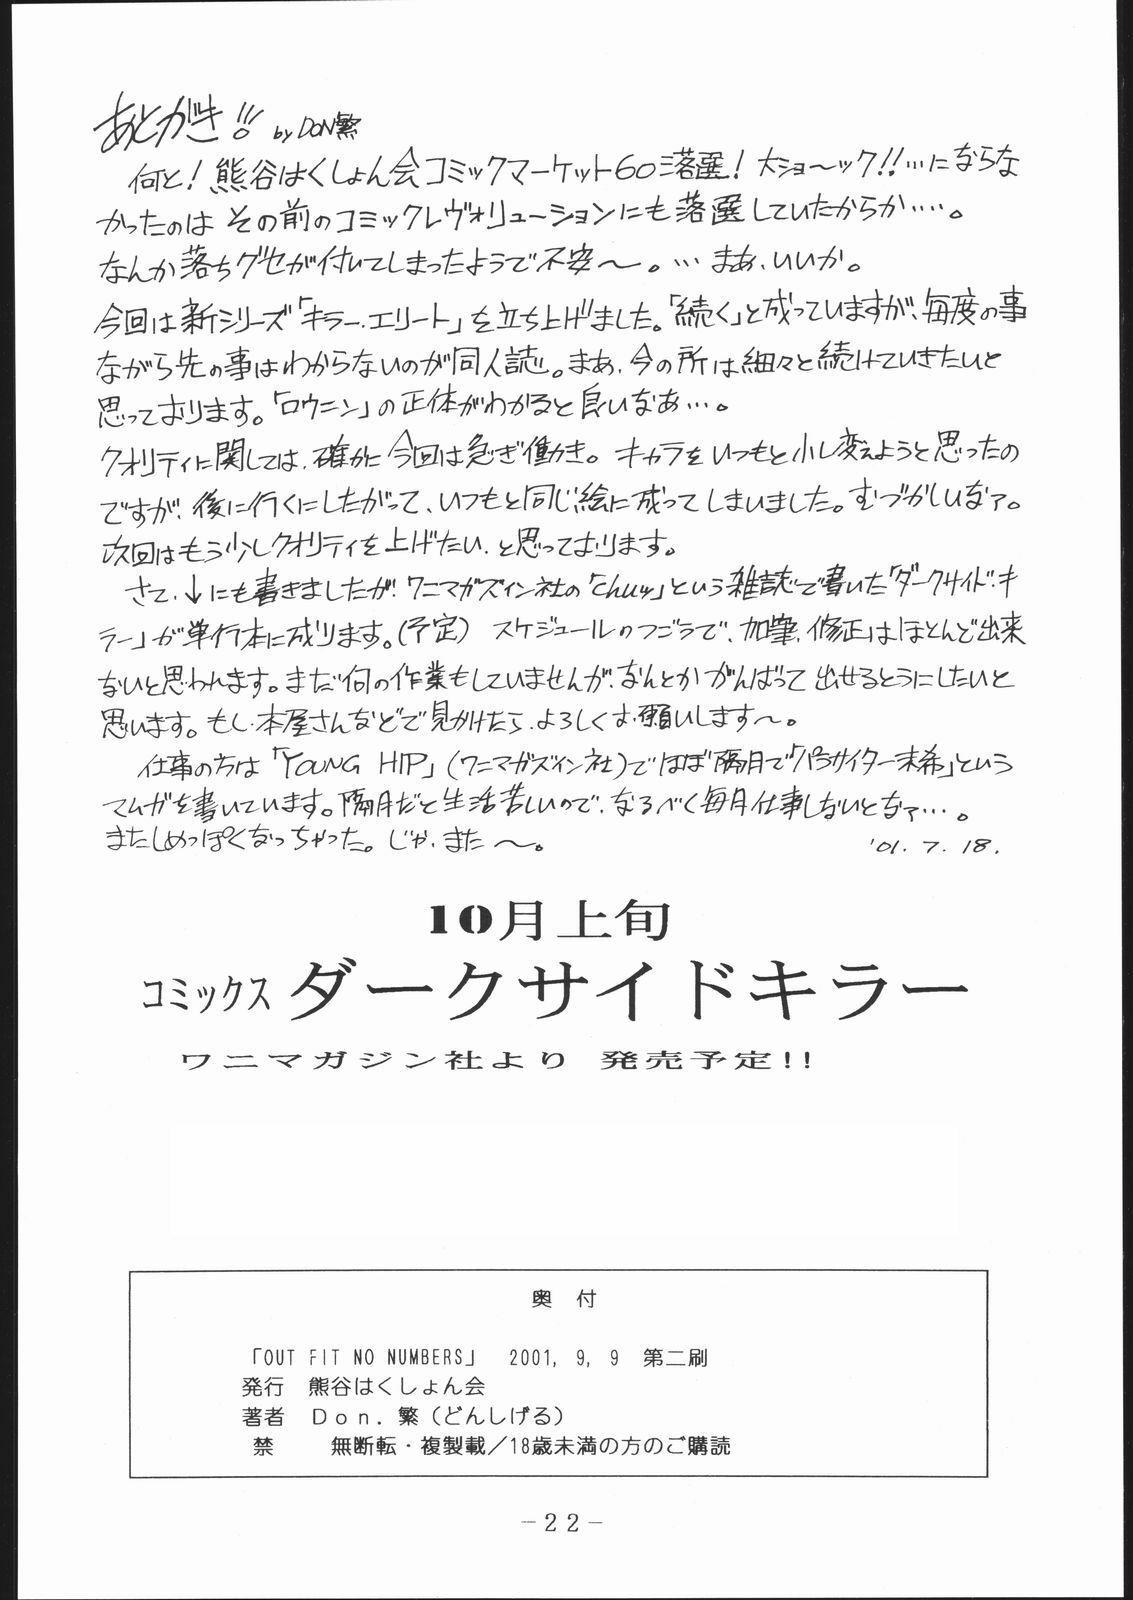 あとがき!! by DON繁
何と!熊谷はくしょん会コミックマーケット60落選!大ショ〜ック!!…にならな
かったのは その前のコミックレヴォリューションにも落選していたからか‥‥。
なんか落ちグセが付いてしまったようで不安〜。…まあ、いいか。
今回は新シリーズ「キラー・エリート」を立ち上げました。「続く」と成っていますが、毎度の事
ながら先の事はわからないのが同人誌。まあ、今の所は細々と続けていきたいと
思っております。「ロウニン」の正体がわかると良いなあ…。
クオリティに関しては、確かに今回は急ぎ働き。キャラをいつもと少し変えようと思ったの
ですが、後に行くにしたがって、いつもと同じ絵に成ってしまいました。むづかしいなァ。
次回はもう少しクオリティを上げたい、と思っております。
さて、↓にも書きましたが、ワニマガズィン社の「chuッ」という雑誌で書いた「ダークサイド・キ
ラー」が単行本に成ります。(予定) スケジュールのつごうで、加筆、修正はほとんど出来
ないと思われます。まだ何の作業もしていませんが、なんとかがんばって出せるとうにしたいと
思います。もし、本屋さんなどで見かけたら、よろしくお願いします〜。
仕事の方は「YOUNG HIP」(ワニマガズィン社)でほぼ隔月で「パラサイター未希」という
マムガを書いています。隔月だと生活苦しいので、なるべく毎月仕事しないとなァ…。
またしめっぽくなっちゃった。じゃ、また〜。 '01.7.18.
10月上旬
コミックス ダークサイドキラー
ワニマガジン社より 発売予定!!
奥 付
「OUT FIT NO NUMBERS」 2001, 9, 9 第二刷
発行 熊谷はくしょん会
著者 Don. 繁(どんしげる)
禁 無断転・複製載/18歳未満の方のご購読
-22-